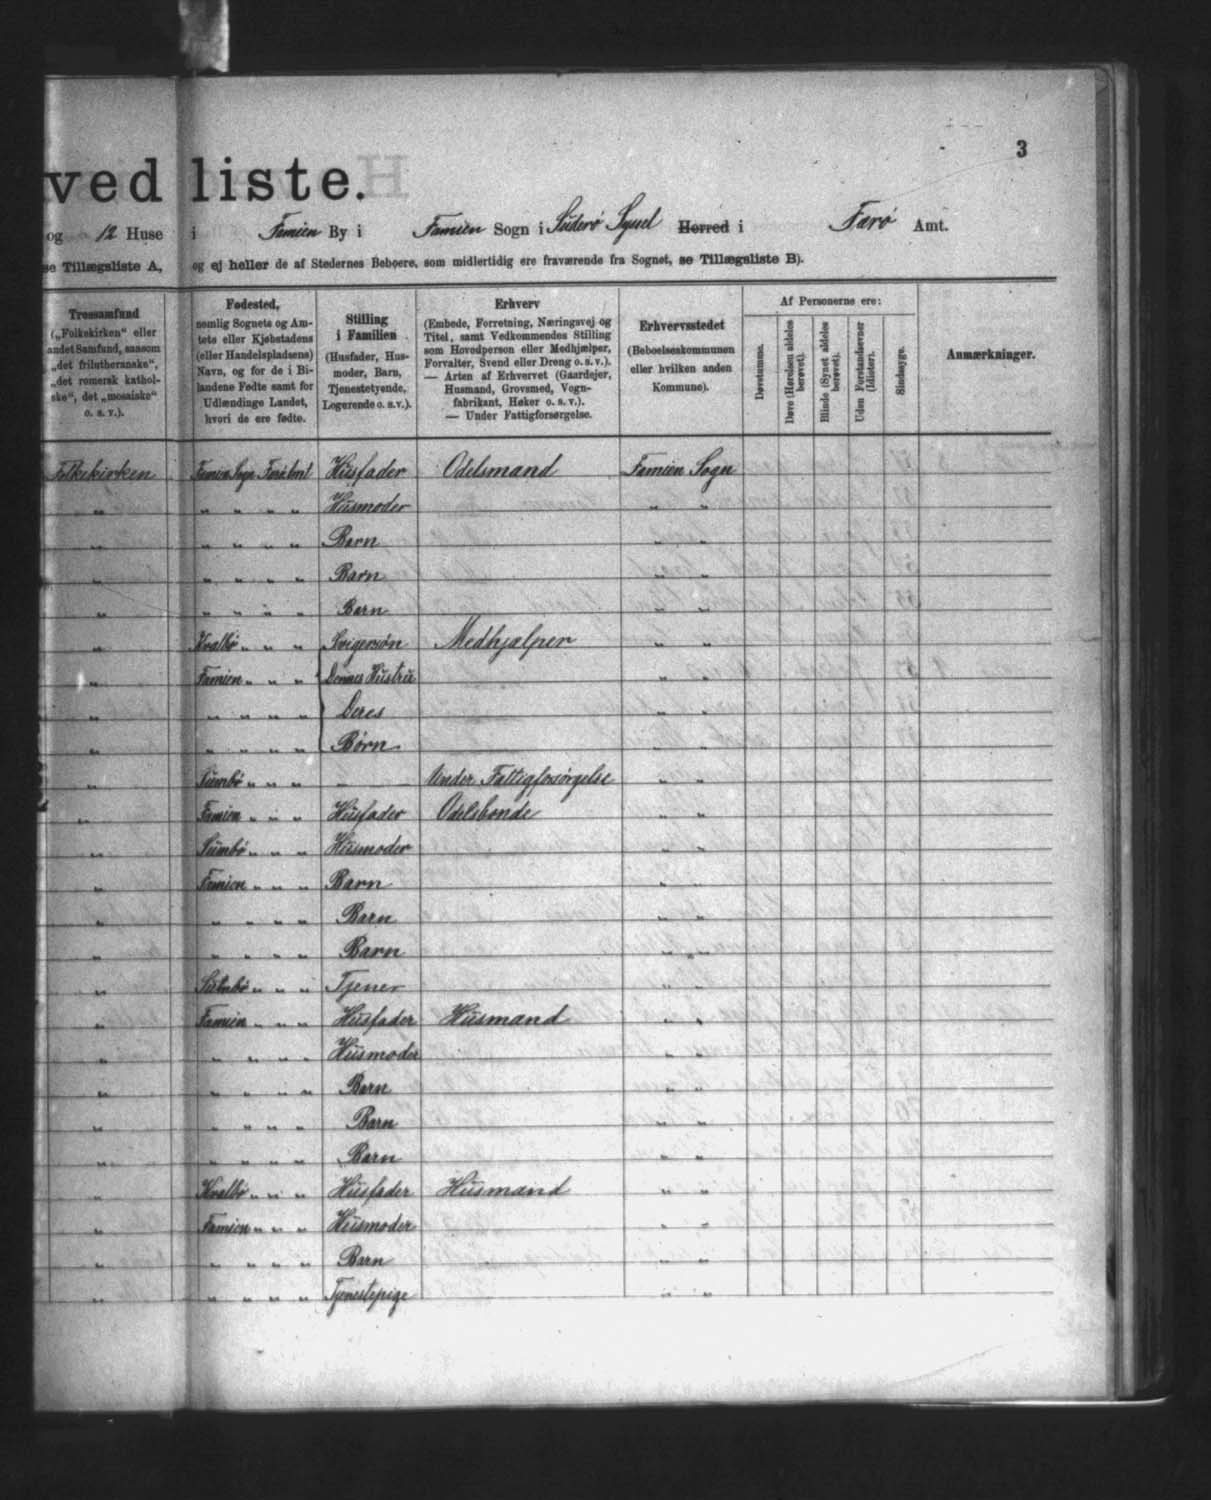 3
ved liste.
og 12 Huse i Famien By i Famien Sogn i Suderø Sysel Herred i Færø Amt.
se Tillægsliste A, og ej heller de af Stedernes Beboere, som midlertidig ere fraværende fra Sognet, se Tillægsliste B).
Trossamfund
(„Folkekirken“ eller
andet Samfund, saasom
„det frilutheranske“,
„det romersk kathol-
ske“, det „mosaiske“
o. s. v.).
Fødested,
nemlig Sognets og Am-
tets eller Kjøbstadens
(eller Handelspladsens)
Navn, og for de i Bi-
landene Fødte samt for
Udlændinge Landet,
hvori de ere fødte.
Stilling
i Familien
(Husfader, Hus-
moder, Barn,
Tjenestetyende,
Logerende o. s. v.).
Erhverv
(Embede, Forretning, Næringsvej og
Titel, samt Vedkommendes Stilling
som Hovedperson eller Medhjælper,
Forvalter, Svend eller Dreng o. s. v.).
— Arten af Erhvervet (Gaardejer,
Husmand, Grovsmed, Vogn-
fabrikant, Høker o. s. v.).
— Under Fattigforsørgelse.
Erhvervsstedet
(Beboelseskommunen
eller hvilken anden
Kommune).
Af Personerne ere:
Døvstumme.
Døve (Hørelsen aldeles
berøvet).
Blinde (Synet aldeles
berøvet).
Uden Forstandsevner
(Idioter).
Sindssyge.
Anmærkninger.
Folkekirken Famien Sogn Færø Amt Husfader Odelsmand Famien Sogn
„ „ „ „ „ Husmoder „ „
„ „ „ „ „ Barn „ „
„ „ „ „ „ Barn „ „
„ „ „ „ „ Barn „ „
„ Kvalbø „ „ „ Svigersøn Medhjælper „ „
„ Famien „ „ „ Dennes Hustru „ „
„ „ „ „ „ Deres „ „
„ „ „ „ „ Børn „ „
„ Sumbø „ „ „ — — Under Fattigforsørgelse „ „
„ Famien „ „ „ Husfader Odelsbonde „ „
„ Sumbø „ „ „ Husmoder „ „
„ Famien „ „ „ Barn „ „
„ „ „ „ „ Barn „ „
„ „ „ „ „ Barn „ „
„ Sumbø „ „ „ Tjener „ „
„ Famien „ „ „ Husfader Husmand „ „
„ „ „ „ „ Husmoder „ „
„ „ „ „ „ Barn „ „
„ „ „ „ „ Barn „ „
„ „ „ „ „ Barn „ „
„ Kvalbø „ „ „ Husfader Husmand „ „
„ Famien „ „ „ Husmoder „ „
„ „ „ „ „ Barn „ „
„ „ „ „ „ Tjenestepige „ „